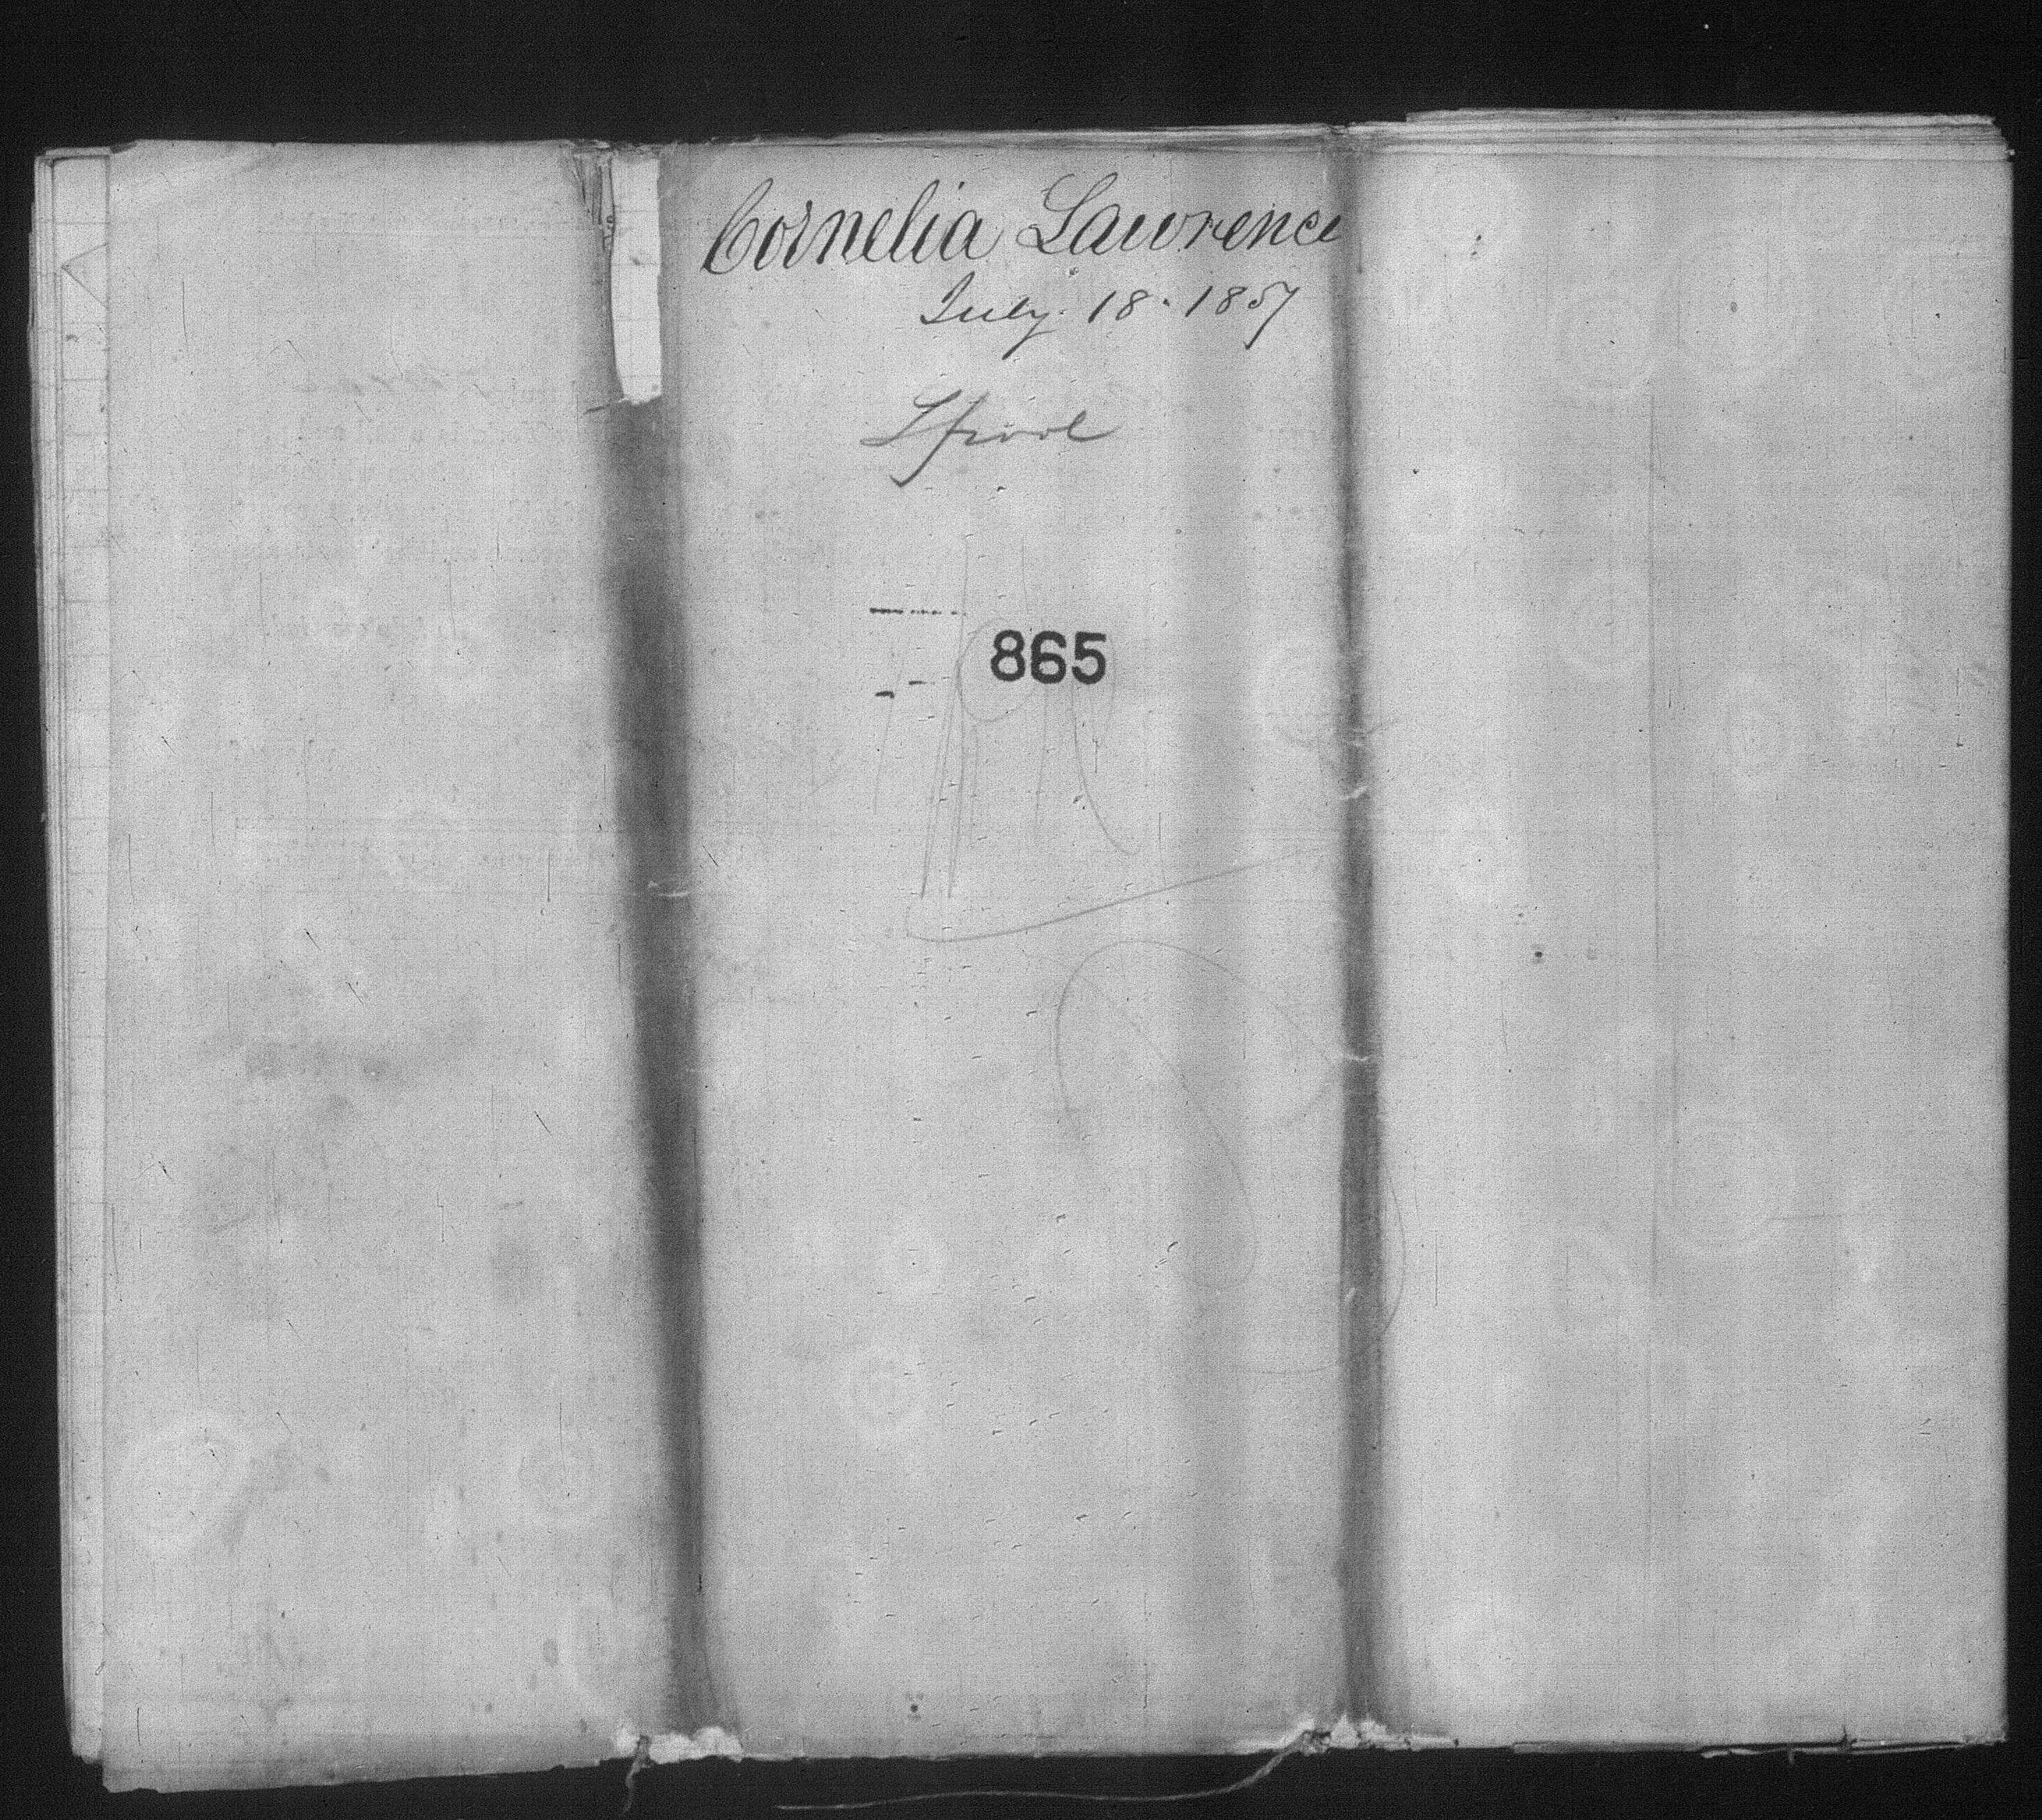 Cornelia Lawrence
July. 18. 1857
Lpool
865